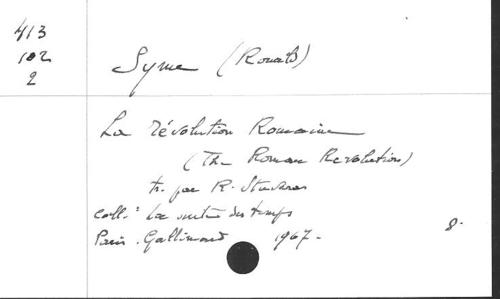 413
102
2
Syme (Ronald)
La révolution Romaine
(The Roman Revolution)
tr. par R. Stuveras
coll.: La suite des temps
Paris. Gallimard 1967-
8.